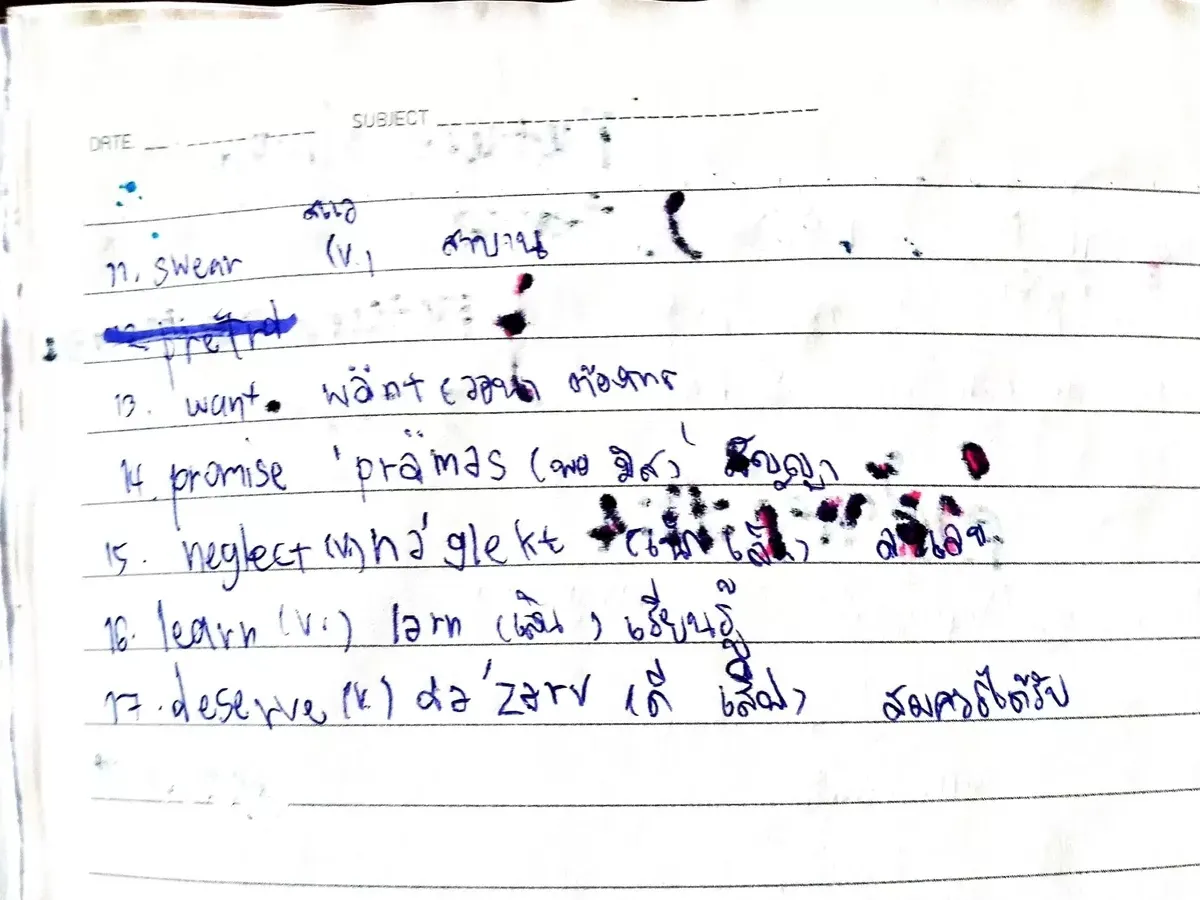 DATE SUBJECT
สแว
11. swear (v.) สาบาน
13. want. wänt (วอนท ต้องการ
14. promise 'prämәs (พอ มิส) สัญญา
15. neglect (v.) nә'glekt (เน็ก เล็ค) ละเลย
16. learn (v.) lәrn (เลิน) เรียนรู้
17. deserve (v.) dә'zәrv (ดี เสิฟ) สมควรได้รับ